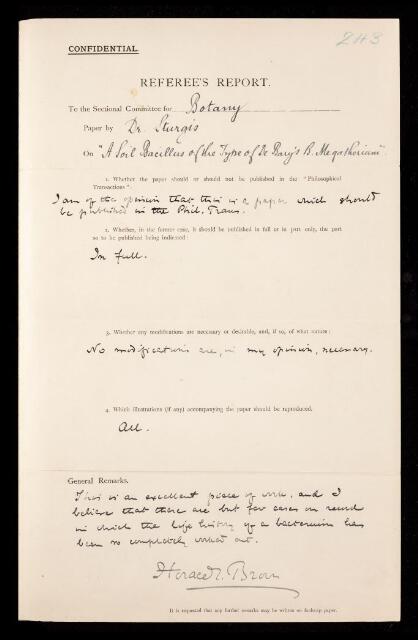 243
CONFIDENTIAL.
REFEREE'S REPORT.
To the Sectional Committee for Botany
Paper by Dr. Sturgis
On "A Soil Bacillus of the Type of De Bary's B. Megatherium".
1. Whether the paper should or should not be published in the "Philosophical
Transactions":
I am of the opinion that this is a paper which should
be published in the Phil. Trans.
2. Whether, in the former case, it should be published in full or in part only, the part
so to be published being indicated:
In full.
3. Whether any modifications are necessary or desirable, and, if so, of what nature:
No modifications are, in my opinion, necessary.
4. Which illustrations (if any) accompanying the paper should be reproduced.
All.
General Remarks.
This is an excellent piece of work, and I
believe that there are but few cases on record
in which the life history of a bacterium has
been so completely worked out.
Horace T. Brown
It is requested that any further remarks may be written on foolscap paper.